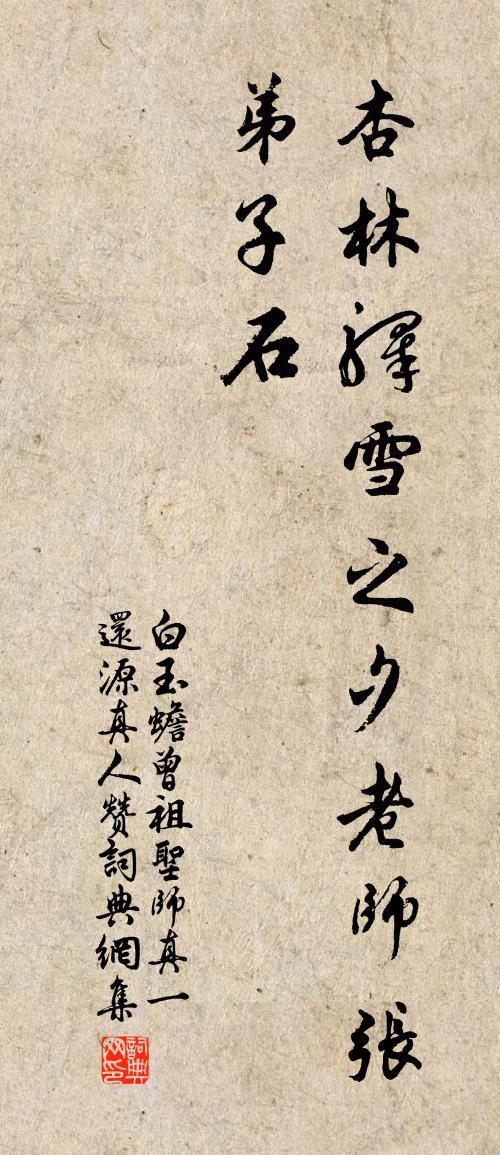 杏林驛雪之夕老師張
弟子石
白玉蟾曾祖聖師真一
還源真人贊詞典網集
詞典网印